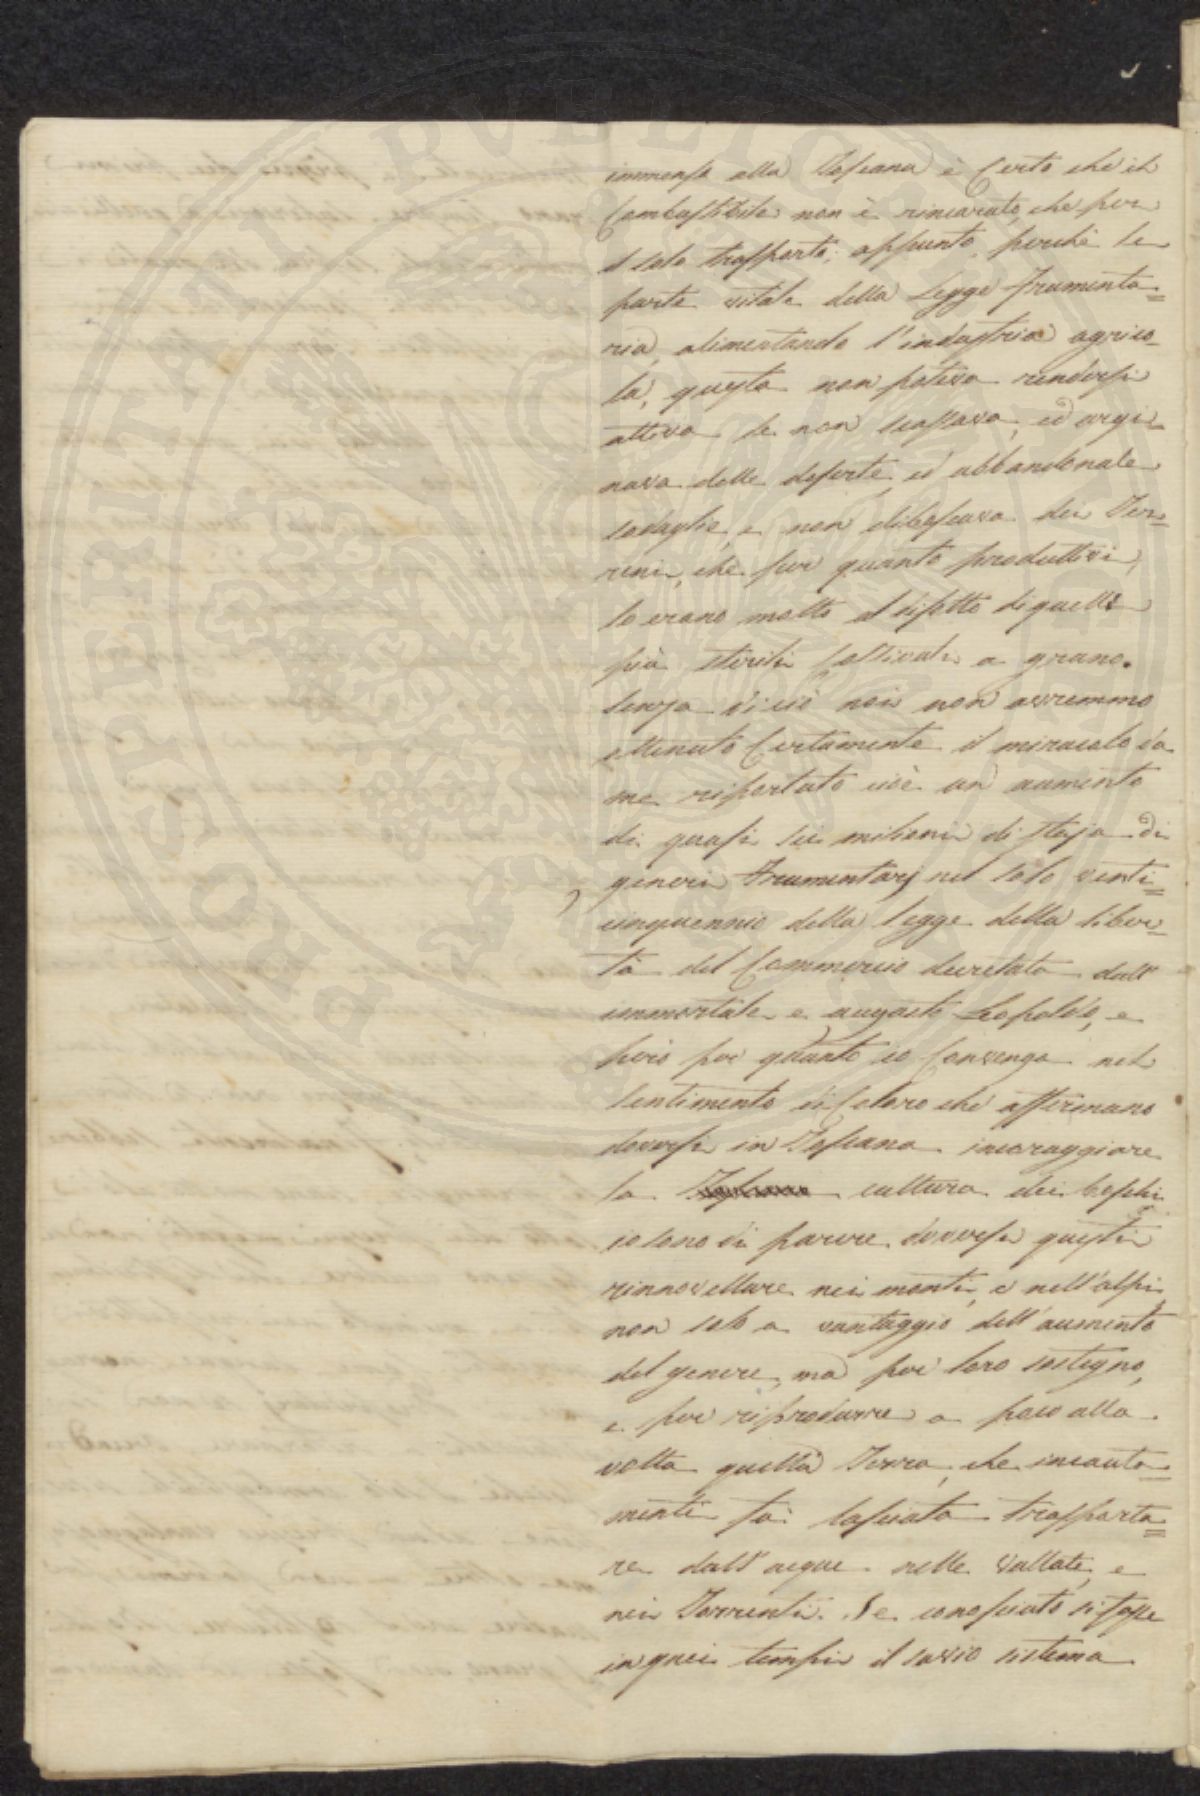 immensa alla Toscana è Certo che il
Combustibile non è rincarato, che per
il solo trasporto; appunto, perchè la
parte vitale della Legge Frumenta=
ria, alimentando l'industria agrico-
la, questa non poteva rendersi
attiva se non scassava, ed argi-
nava delle deserte, ed abbandonate
sodaglie, e non diboscava dei Ter=
reni, che per quanto produttivi,
lo erano molto al disotto di quelli
più sterili Coltivati a grano.
Senza di ciò noi non avremmo
ottenuto Certamente il miracolo da
me riportato cioè un aumento
di quasi sei milioni di staja di
generi Frumentarj nel solo venti=
cinquennio della legge della liber=
tà del Commercio decretata dall'
immortale e augusto Leopoldo, e
però per quanto io Convenga nel
sentimento di Coloro che affermano
doversi in Toscana incoraggiare
la cultura dei boschi
io sono di parere doversi questi
rinnovellare nei monti, e nell'alpi,
non solo a vantaggio dell'aumento
del genere, ma per loro sostegno,
e per riprodurre a poco alla
volta quella Terra, che incauta=
mente fù lasciata trasporta=
re dall'acque nelle Vallate, e
nei Torrenti. Se conosciuto si fosse
in quei tempi il savio sistema
PROSPERITATI PVBLICAE